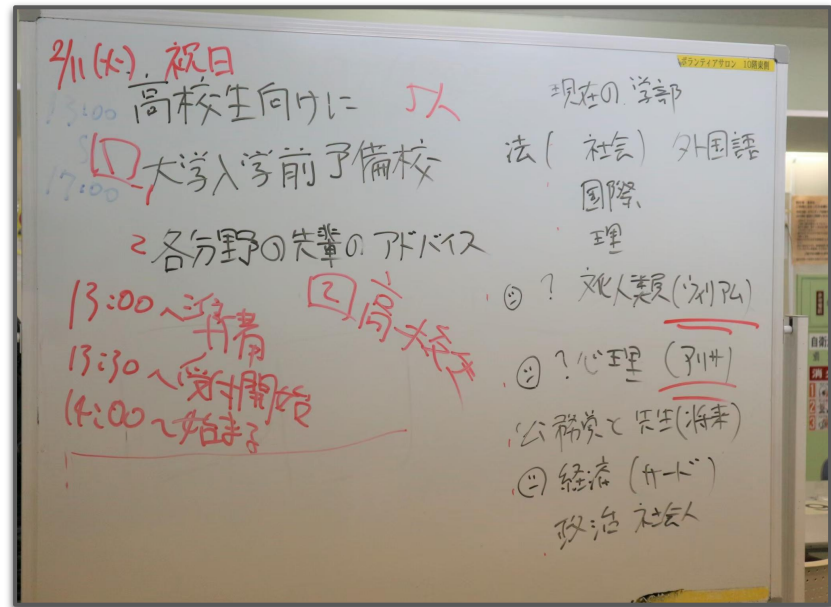 2/11(火) 祝日
13:00
17:00
高校生向けに 5人
1 大学入学前予備校
2 各分野の先輩のアドバイス
13:00~準備
13:30~受付開始
14:00~始まる
2 高校
ボランティアサロン 10階東側
現在の学部
法( 社会) 外国語
国際
理
? 文化人類(ウィリアム)
? 心理 (アリサ)
公務員と先生(将来)
経済 (サード)
政治 社会人